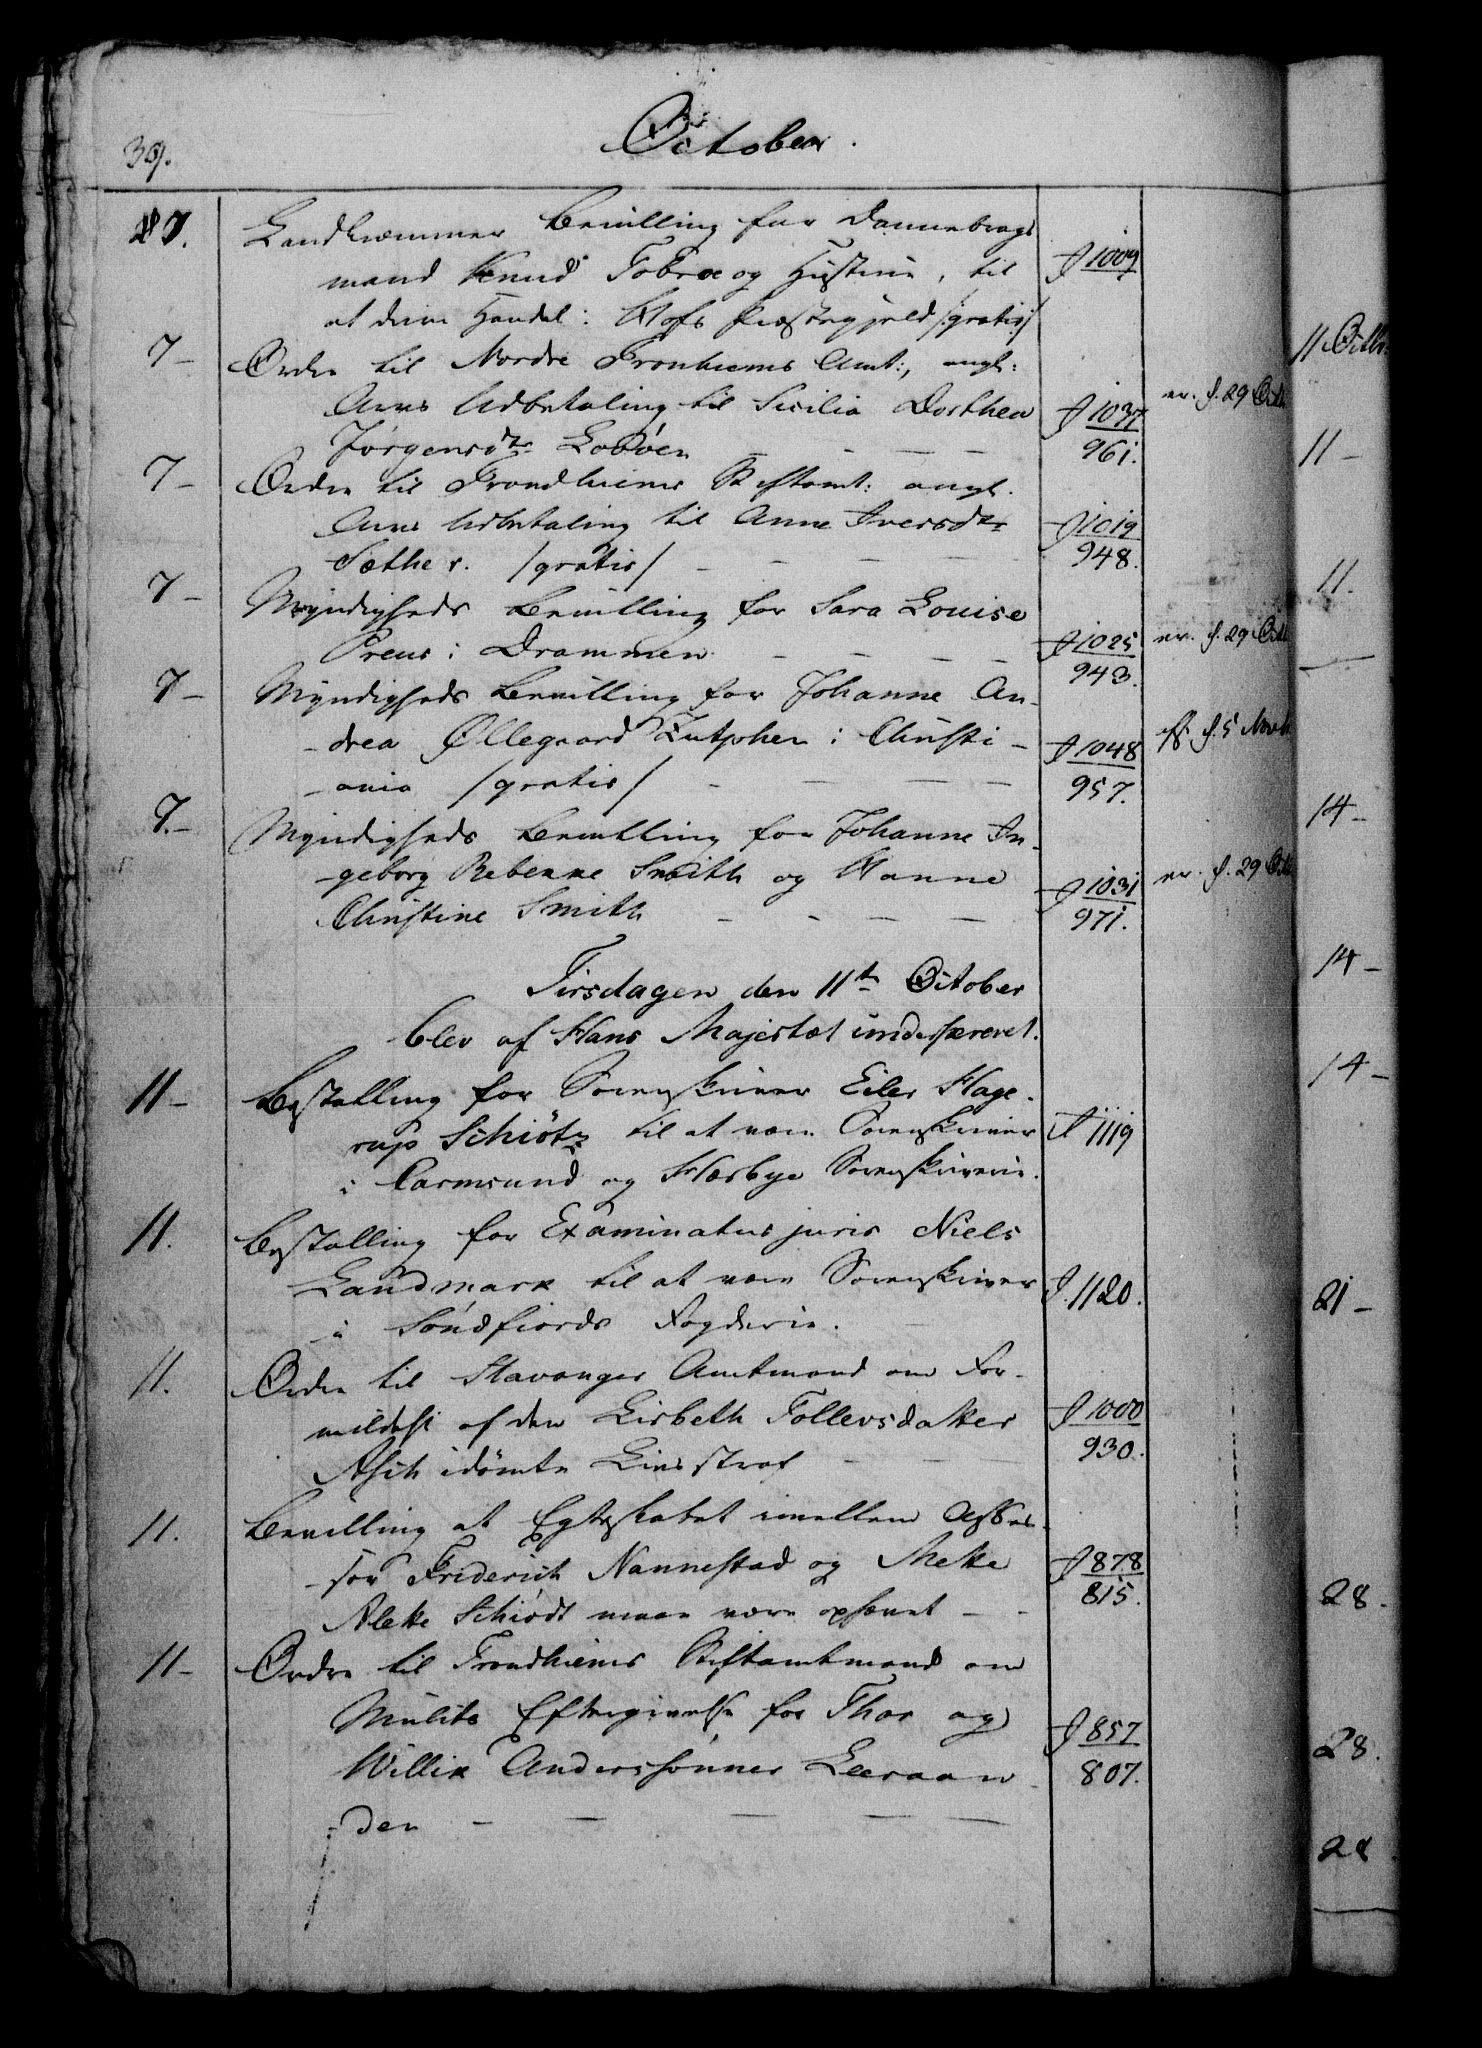 39.
October.
7. Landkræmmer Bevilling for Dannebrogs
mand Knud Fobræ og Hustrue, til
at drive Handel i Hofs Præstegjeld /:gratis:/
J 1009
7- Ordre til Nordre Tronhiems Amt:, angl:
Arvs Udbetaling til Sicilia Dorthea
Jørgensdtr Lobóen - - -
J 1037
961.
er. d. 29 Octb
7- Ordre til Trondhiems Stiftamt: angl.
Arvs Udbetaling til Anne Iversdtr
Sæther. /gratis/ - - -
J 1019
948.
7- Myndigheds Bevilling for Sara Louise
Preus i Drammen - - -
J 1025
943.
er. d. 29 Octb
7- Myndigheds Bevilling for Johanne An-
-drea Øllegaard Zutphen i Christi-
-ania /gratis/ - - -
J 1048
957.
d. 5 Novb
7.- Myndigheds Bevilling for Johanne In-
-geborg Rebekke Smith og Hanne
Christine Smith - - - -
J 1031
971.
er. d. 29 Octb
Tirsdagen den 11te October
blev af Hans Majestæt underskrevet.
11- Bestalling for Sorenskriver Eiler Hage-
rup Schiötz til at være Sorenskriver
i Carmsund og Hesbye Sorenskriverie.
J 1119
11. Bestalling for Examinatus juris Niels
Landmark til at være Sorenskriver
i Søndfiords Fogderie.
J. 1120.
11. Ordre til Stavanger Amtmand om For-
mildelse af den Lisbeth Tollevsdatter
idømte Livsstraf - - -
J 1000
930.
11. Bevilling at Egteskabet imellem Asses-
-sor Friderich Nannestad og Mette
Alette Schiødt maae være ophævet - -
J 878
815.
11- Ordre til Trondhiems Stiftamtmand om
Mulcts Eftergivelse for Thor og
Willik Anderssønner Leeraan-
-den - - - - -
J 857
807.
11 Octbr.
11-
11.
14-
14-
14-
21-
28.
28.
28.